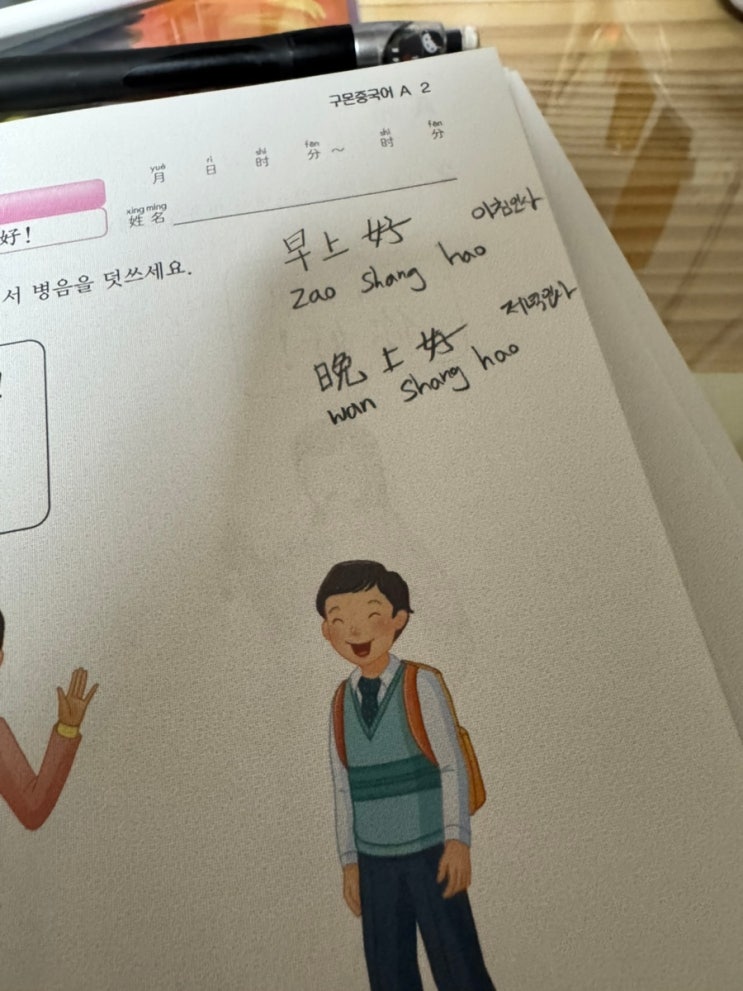 구몬중국어 A 2
yuè rì shí fēn shí fēn
月 日 时 分 ~ 时 分
xìng míng
姓 名
好!
서 병음을 덧쓰세요.
早上好 아침인사
zao shang hao
晚上好 저녁인사
wan shang hao